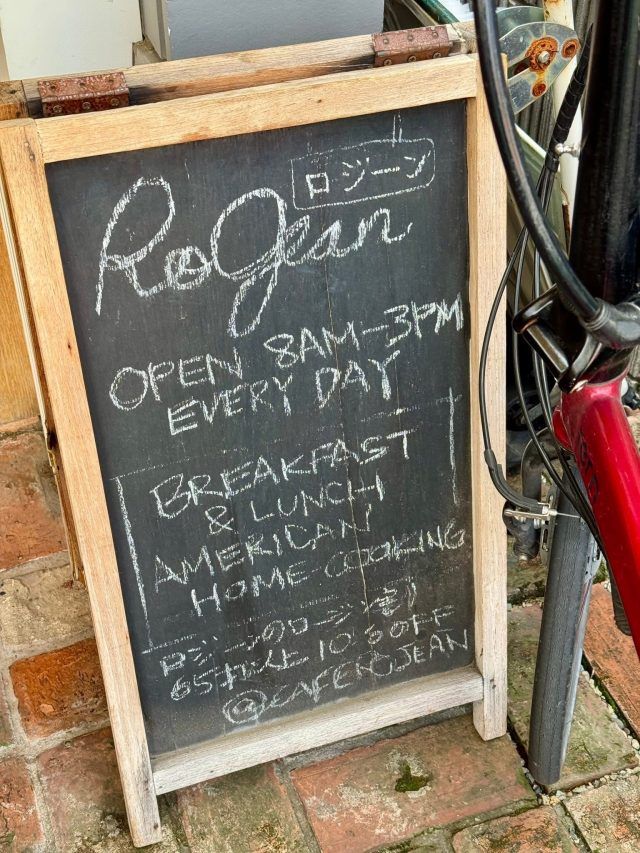 ロジーン
RoJean
OPEN 8AM-3PM
EVERY DAY
BREAKFAST
& LUNCH
AMERICAN
HOME COOKING
65才以上 10%OFF
@CAFEROJEAN